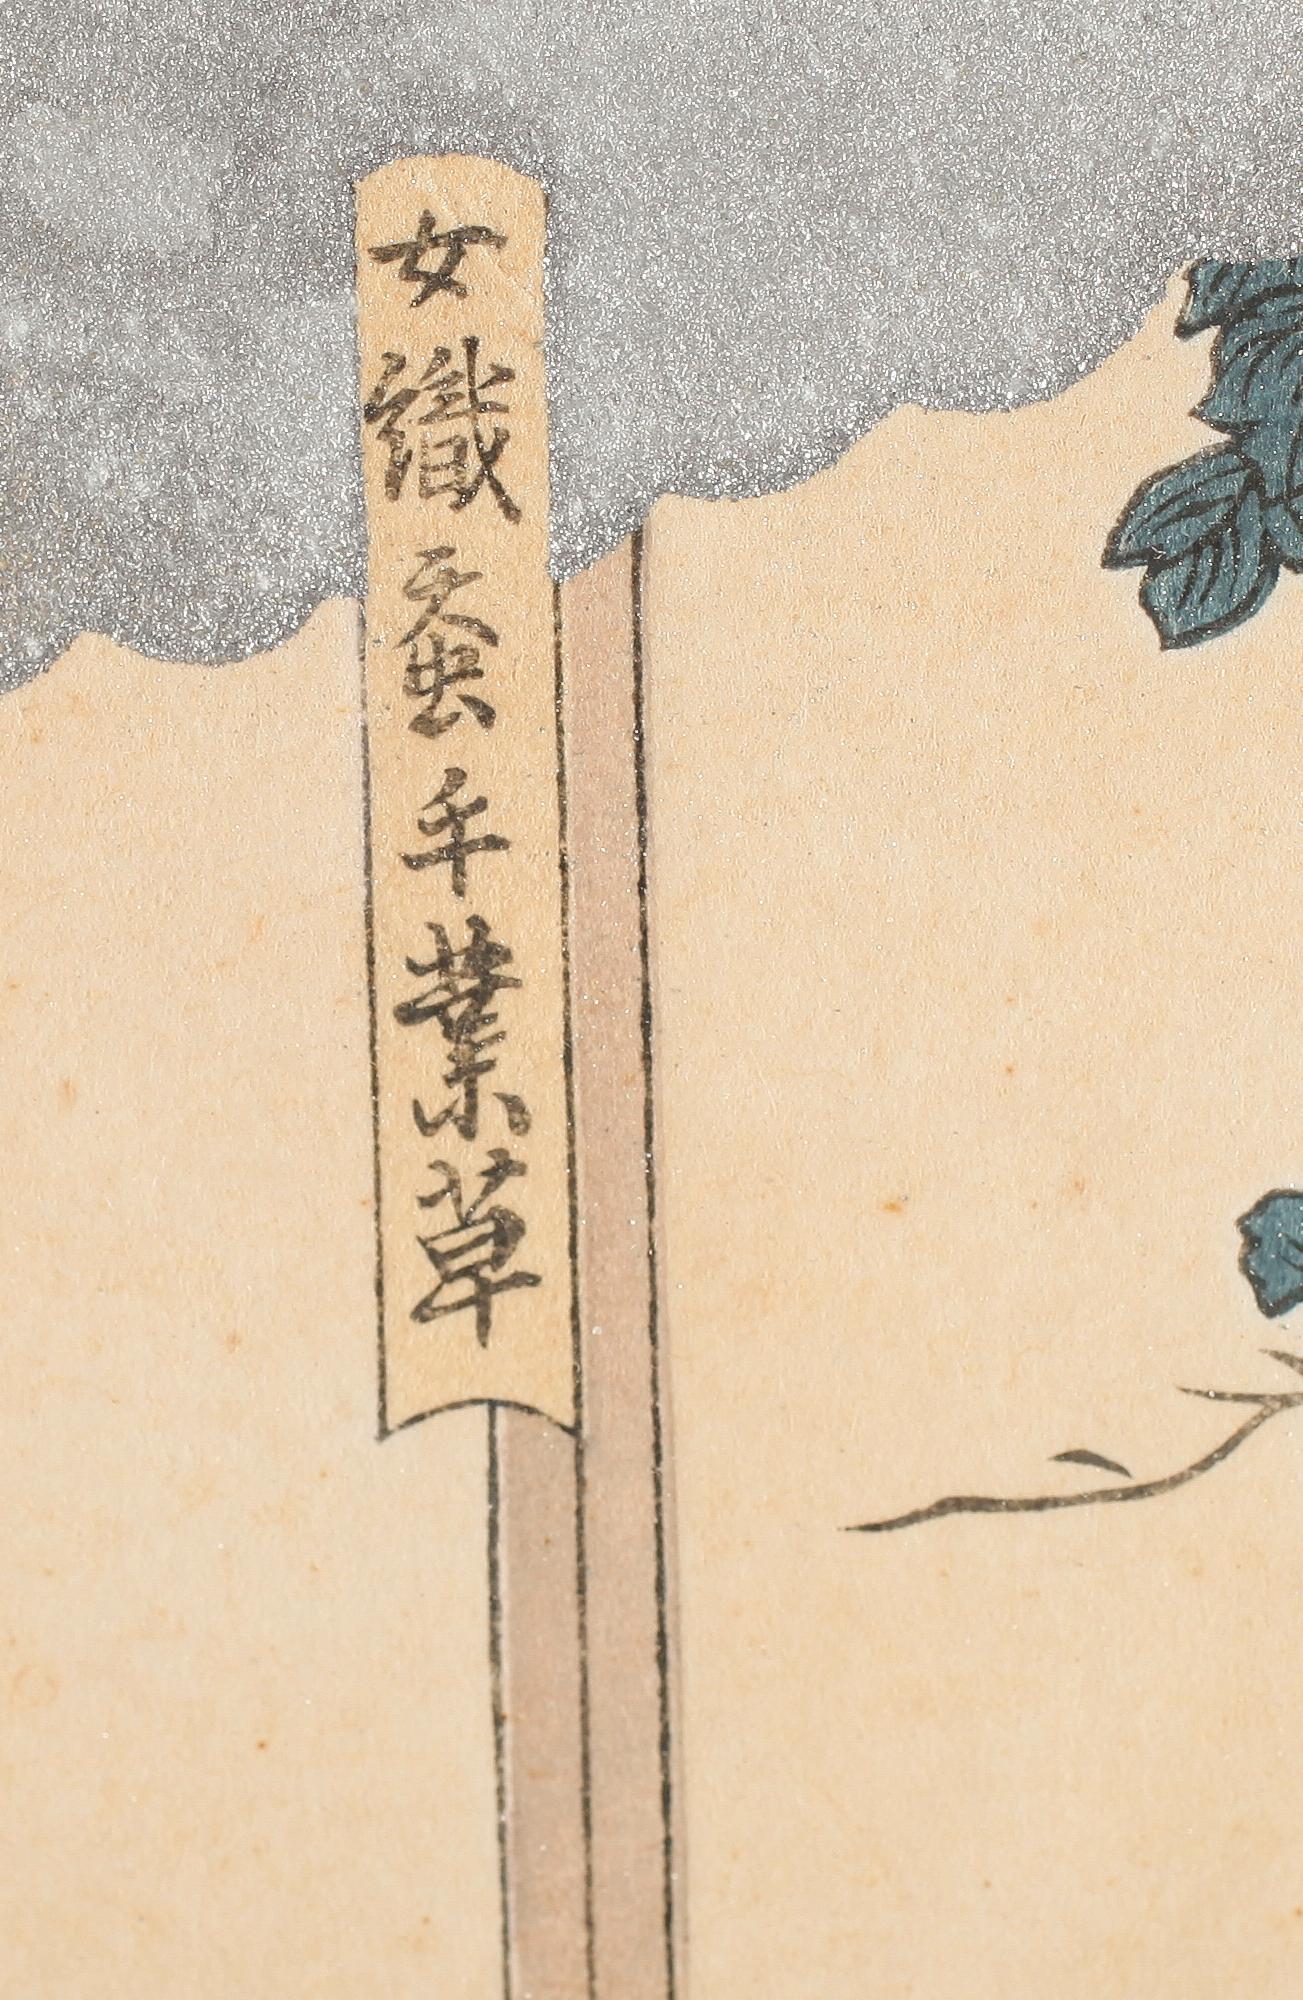 女織蚕手業草